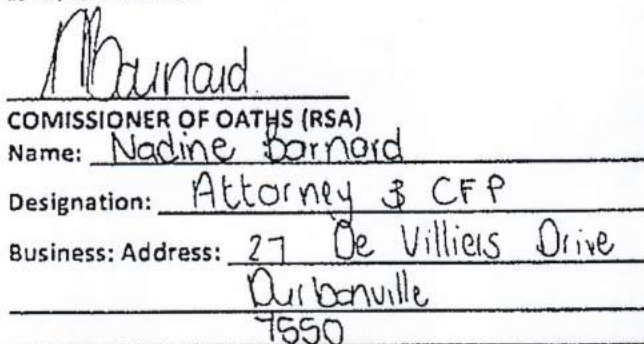 NBarnard
COMISSIONER OF OATHS (RSA)
Name: Nadine Barnard
Designation: Attorney & CFP
Business: Address: 27 De Villiers Drive
Durbanville
7550